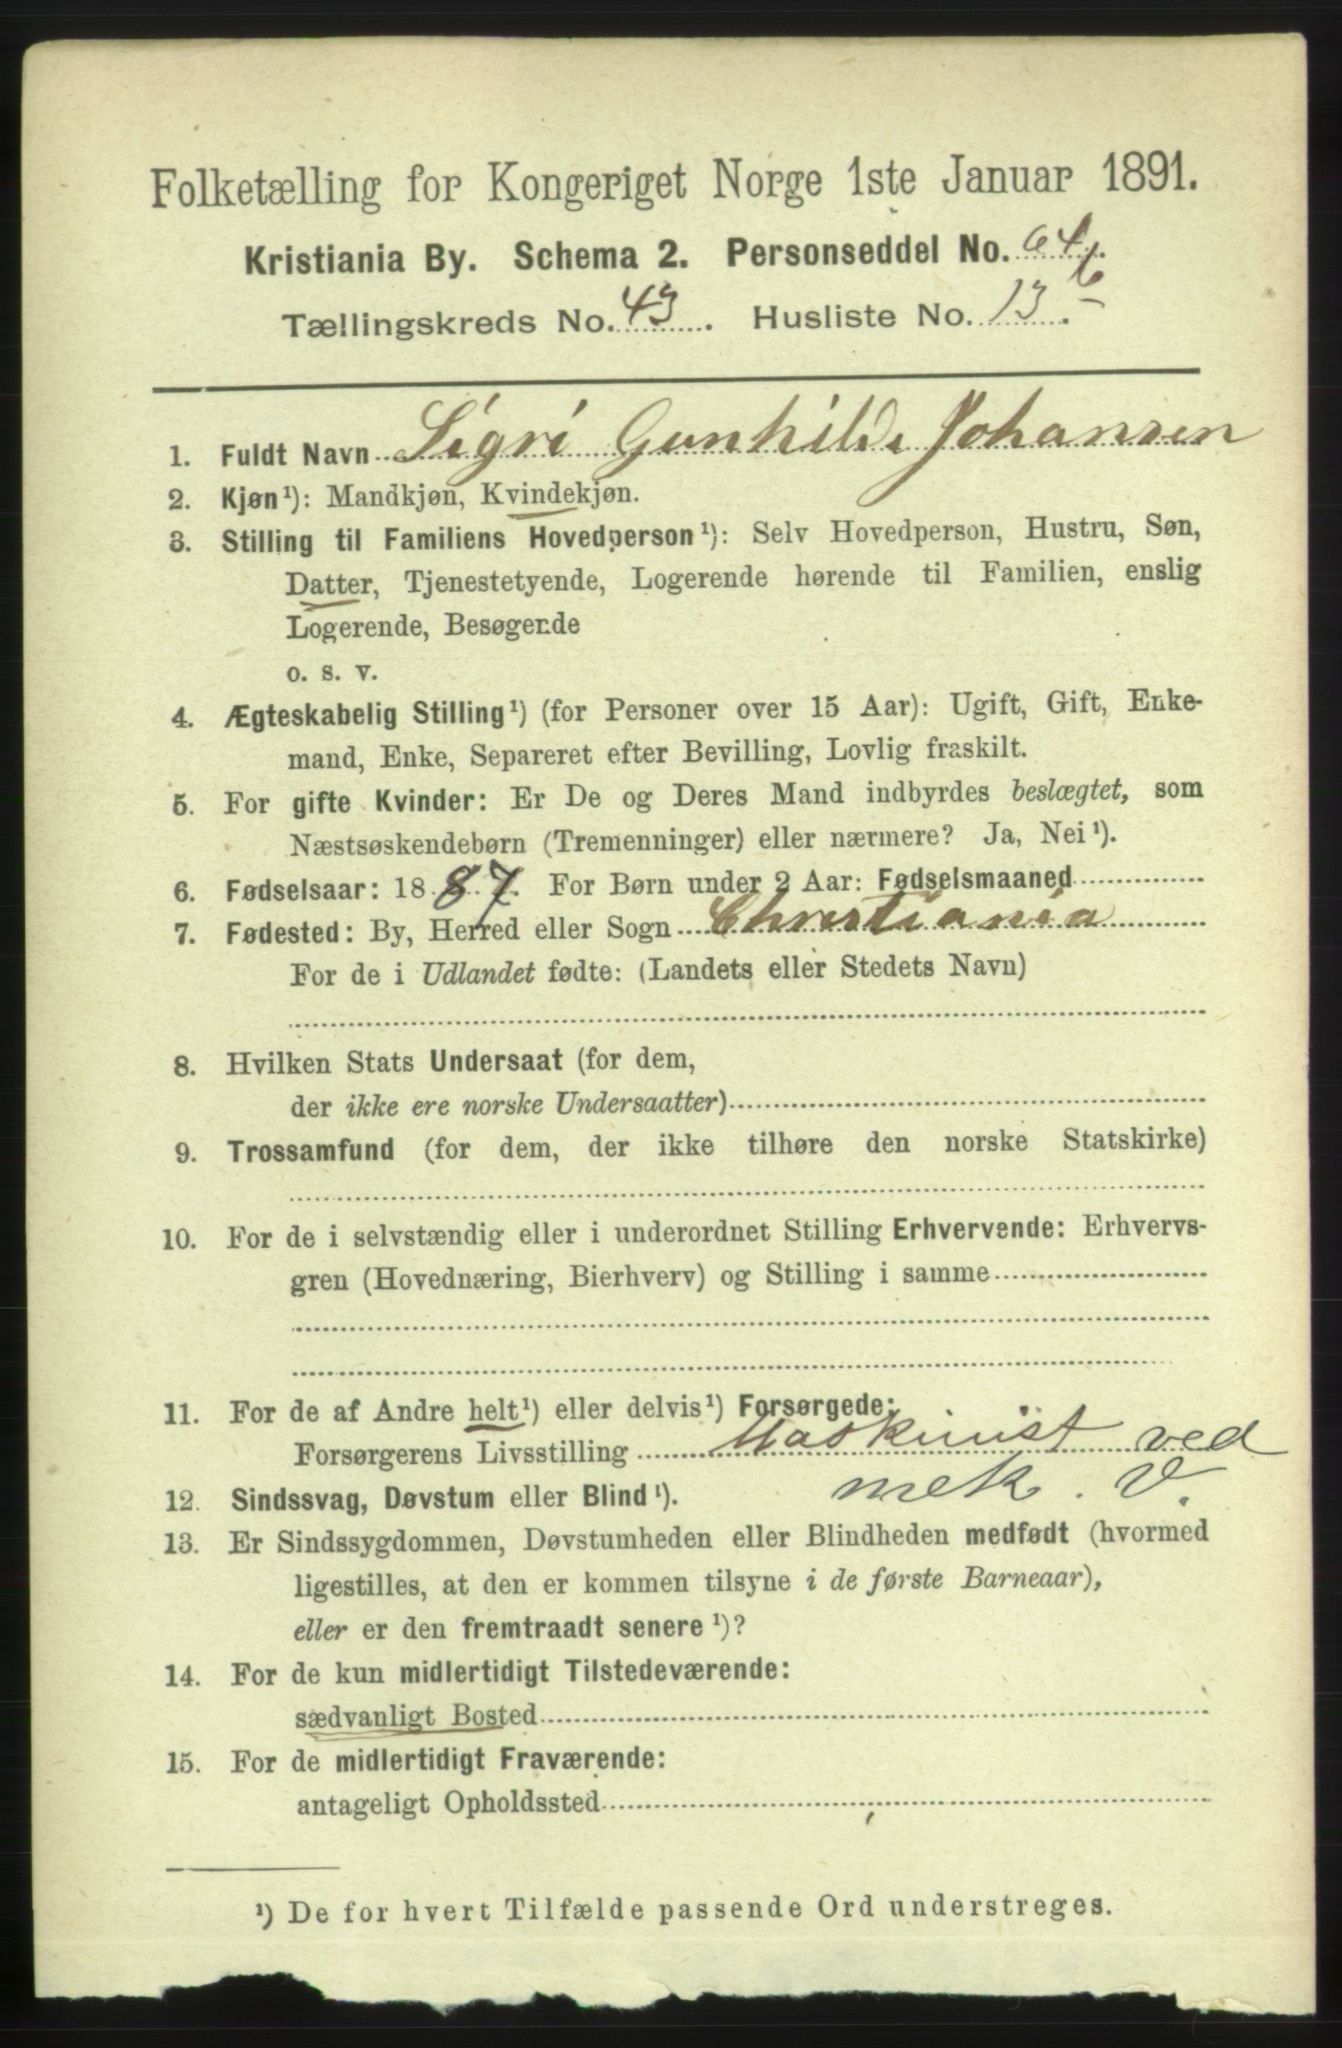 Folketælling for Kongeriget Norge 1ste Januar 1891.
Kristiania By. Schema 2. Personseddel No. 64
Tællingskreds No. 43. Husliste No. 13 b.
1. Fuldt Navn Sigri Gunhilde Johansen
2. Kjøn¹): Mandkjøn, Kvindekjøn.
3. Stilling til Familiens Hovedperson¹): Selv Hovedperson, Hustru, Søn,
Datter, Tjenestetyende, Logerende hørende til Familien, enslig
Logerende, Besøgende
o. s. v.
4. Ægteskabelig Stilling¹) (for Personer over 15 Aar): Ugift, Gift, Enke-
mand, Enke, Separeret efter Bevilling, Lovlig fraskilt.
5. For gifte Kvinder: Er De og Deres Mand indbyrdes beslægtet, som
Næstsøskendebørn (Tremenninger) eller nærmere? Ja, Nei¹).
6. Fødselsaar: 1887. For Børn under 2 Aar: Fødselsmaaned
7. Fødested: By, Herred eller Sogn Christiania
For de i Udlandet fødte: (Landets eller Stedets Navn)
8. Hvilken Stats Undersaat (for dem,
der ikke ere norske Undersaatter)
9. Trossamfund (for dem, der ikke tilhøre den norske Statskirke)
10. For de i selvstændig eller i underordnet Stilling Erhvervende: Erhvervs-
gren (Hovednæring, Bierhverv) og Stilling i samme
11. For de af Andre helt¹) eller delvis¹) Forsørgede:
Forsørgerens Livsstilling Maskinist ved
mek. V.
12. Sindssvag, Døvstum eller Blind¹).
13. Er Sindssygdommen, Døvstumheden eller Blindheden medfødt (hvormed
ligestilles, at den er kommen tilsyne i de første Barneaar),
eller er den fremtraadt senere¹)?
14. For de kun midlertidigt Tilstedeværende:
sædvanligt Bosted
15. For de midlertidigt Fraværende:
antageligt Opholdssted
¹) De for hvert Tilfælde passende Ord understreges.